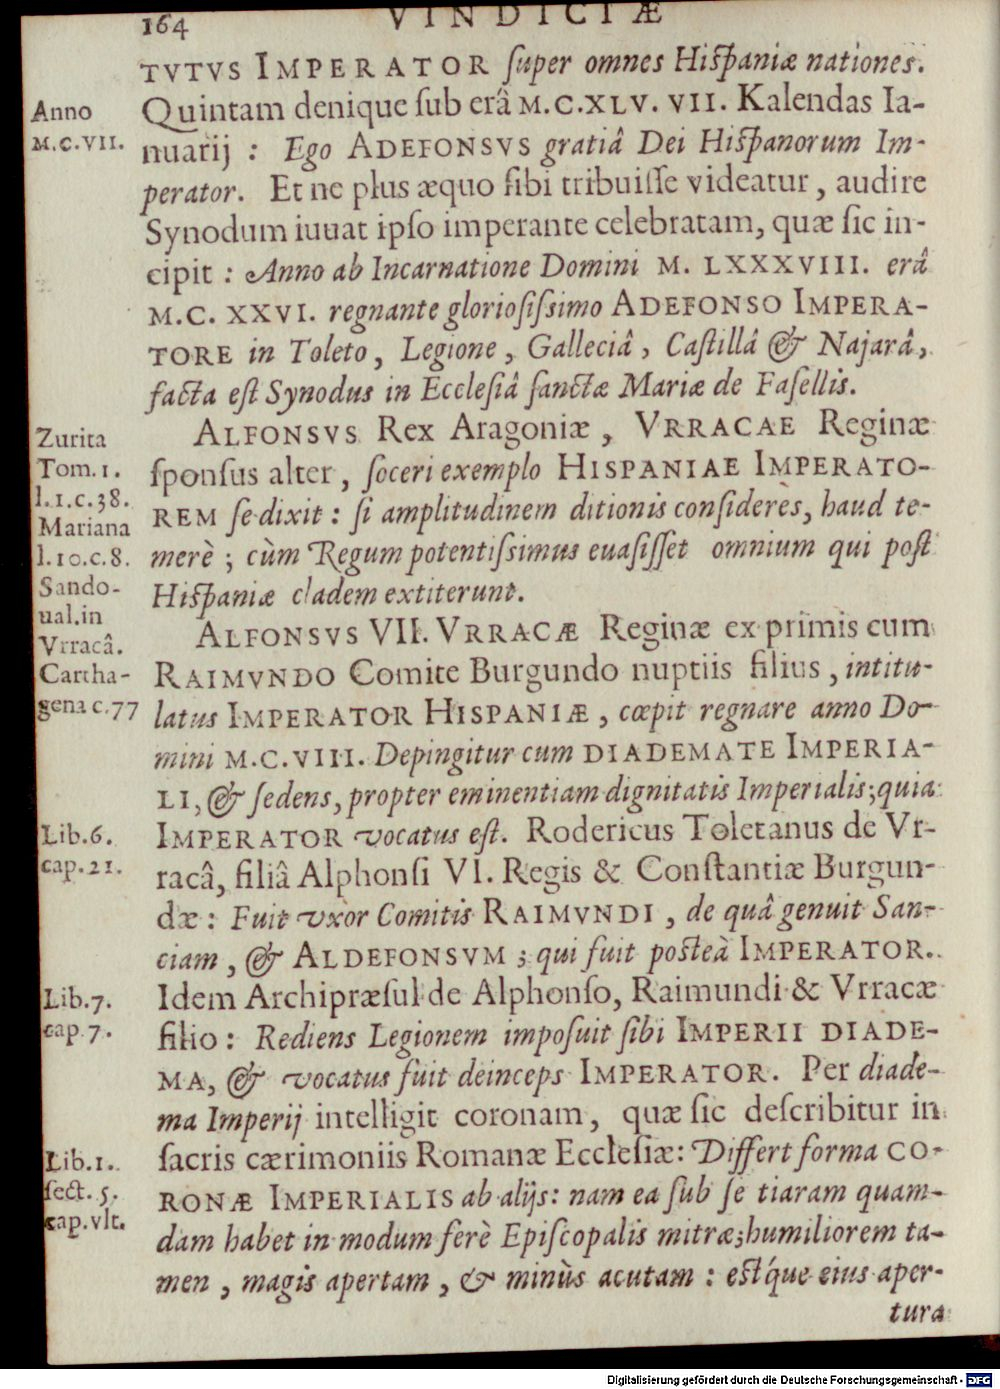 164 VINDICIÆ
TVTVS IMPERATOR ſuper omnes Hiſpaniæ nationes.
Anno
M.C.VII.
Quintam denique ſub erâ M.C.XLV. VII. Kalendas Ia-
nuarij : Ego ADEFONSVS gratiâ Dei Hiſpanorum Im-
perator. Et ne plus æquo ſibi tribuiſſe videatur, audire
Synodum iuuat ipſo imperante celebratam, quæ ſic in-
cipit : Anno ab Incarnatione Domini M. LXXXVIII. erâ
M.C. XXVI. regnante glorioſiſsimo ADEFONSO IMPERA-
TORE in Toleto, Legione, Galleciâ, Caſtillâ & Najarâ,
facta eſt Synodus in Eccleſiâ ſanctæ Mariæ de Faſellis.
Zurita
Tom. 1.
l.1.c.38.
Mariana
l.10.c.8.
Sando-
ual.in
Vrracâ.
Cartha-
gena c.77
ALFONSVS Rex Aragoniæ, VRRACAE Reginæ
ſponſus alter, ſoceri exemplo HISPANIAE IMPERATO-
REM ſe dixit : ſi amplitudinem ditionis conſiderès, haud te-
merè ; cùm Regum potentiſsimus euaſiſſet omnium qui poſt
Hiſpaniæ cladem extiterunt.
ALFONSVS VII. VRRACÆ Reginæ ex primis cum
RAIMVNDO Comite Burgundo nuptiis filius, intitu-
latus IMPERATOR HISPANIÆ, cœpit regnare anno Do-
mini M.C.VIII. Depingitur cum DIADEMATE IMPERIA-
LI, & ſedens, propter eminentiam dignitatis Imperialis; quia
Lib.6.
cap.21.
IMPERATOR vocatus eſt. Rodericus Toletanus de Vr-
racâ, filiâ Alphonſi VI. Regis & Conſtantiæ Burgun-
dæ : Fuit vxor Comitis RAIMVNDI, de quâ genuit San-
ciam, & ALDEFONSVM ; qui fuit poſteà IMPERATOR.
Lib.7.
cap.7.
Idem Archipræſul de Alphonſo, Raimundi & Vrracæ
filio : Rediens Legionem impoſuit ſibi IMPERII DIADE-
MA, & vocatus fuit deinceps IMPERATOR. Per diade-
ma Imperij intelligit coronam, quæ ſic deſcribitur in
Lib.1.
ſect.5.
cap.vlt.
ſacris cærimoniis Romanæ Eccleſiæ : Differt forma CO-
RONÆ IMPERIALIS ab alijs : nam ea ſub ſe tiaram quam-
dam habet in modum ferè Epiſcopalis mitræ; humiliorem ta-
men, magis apertam, & minùs acutam : eſt́que eius aper-
tura
Digitalisierung gefördert durch die Deutsche Forschungsgemeinschaft - DFG